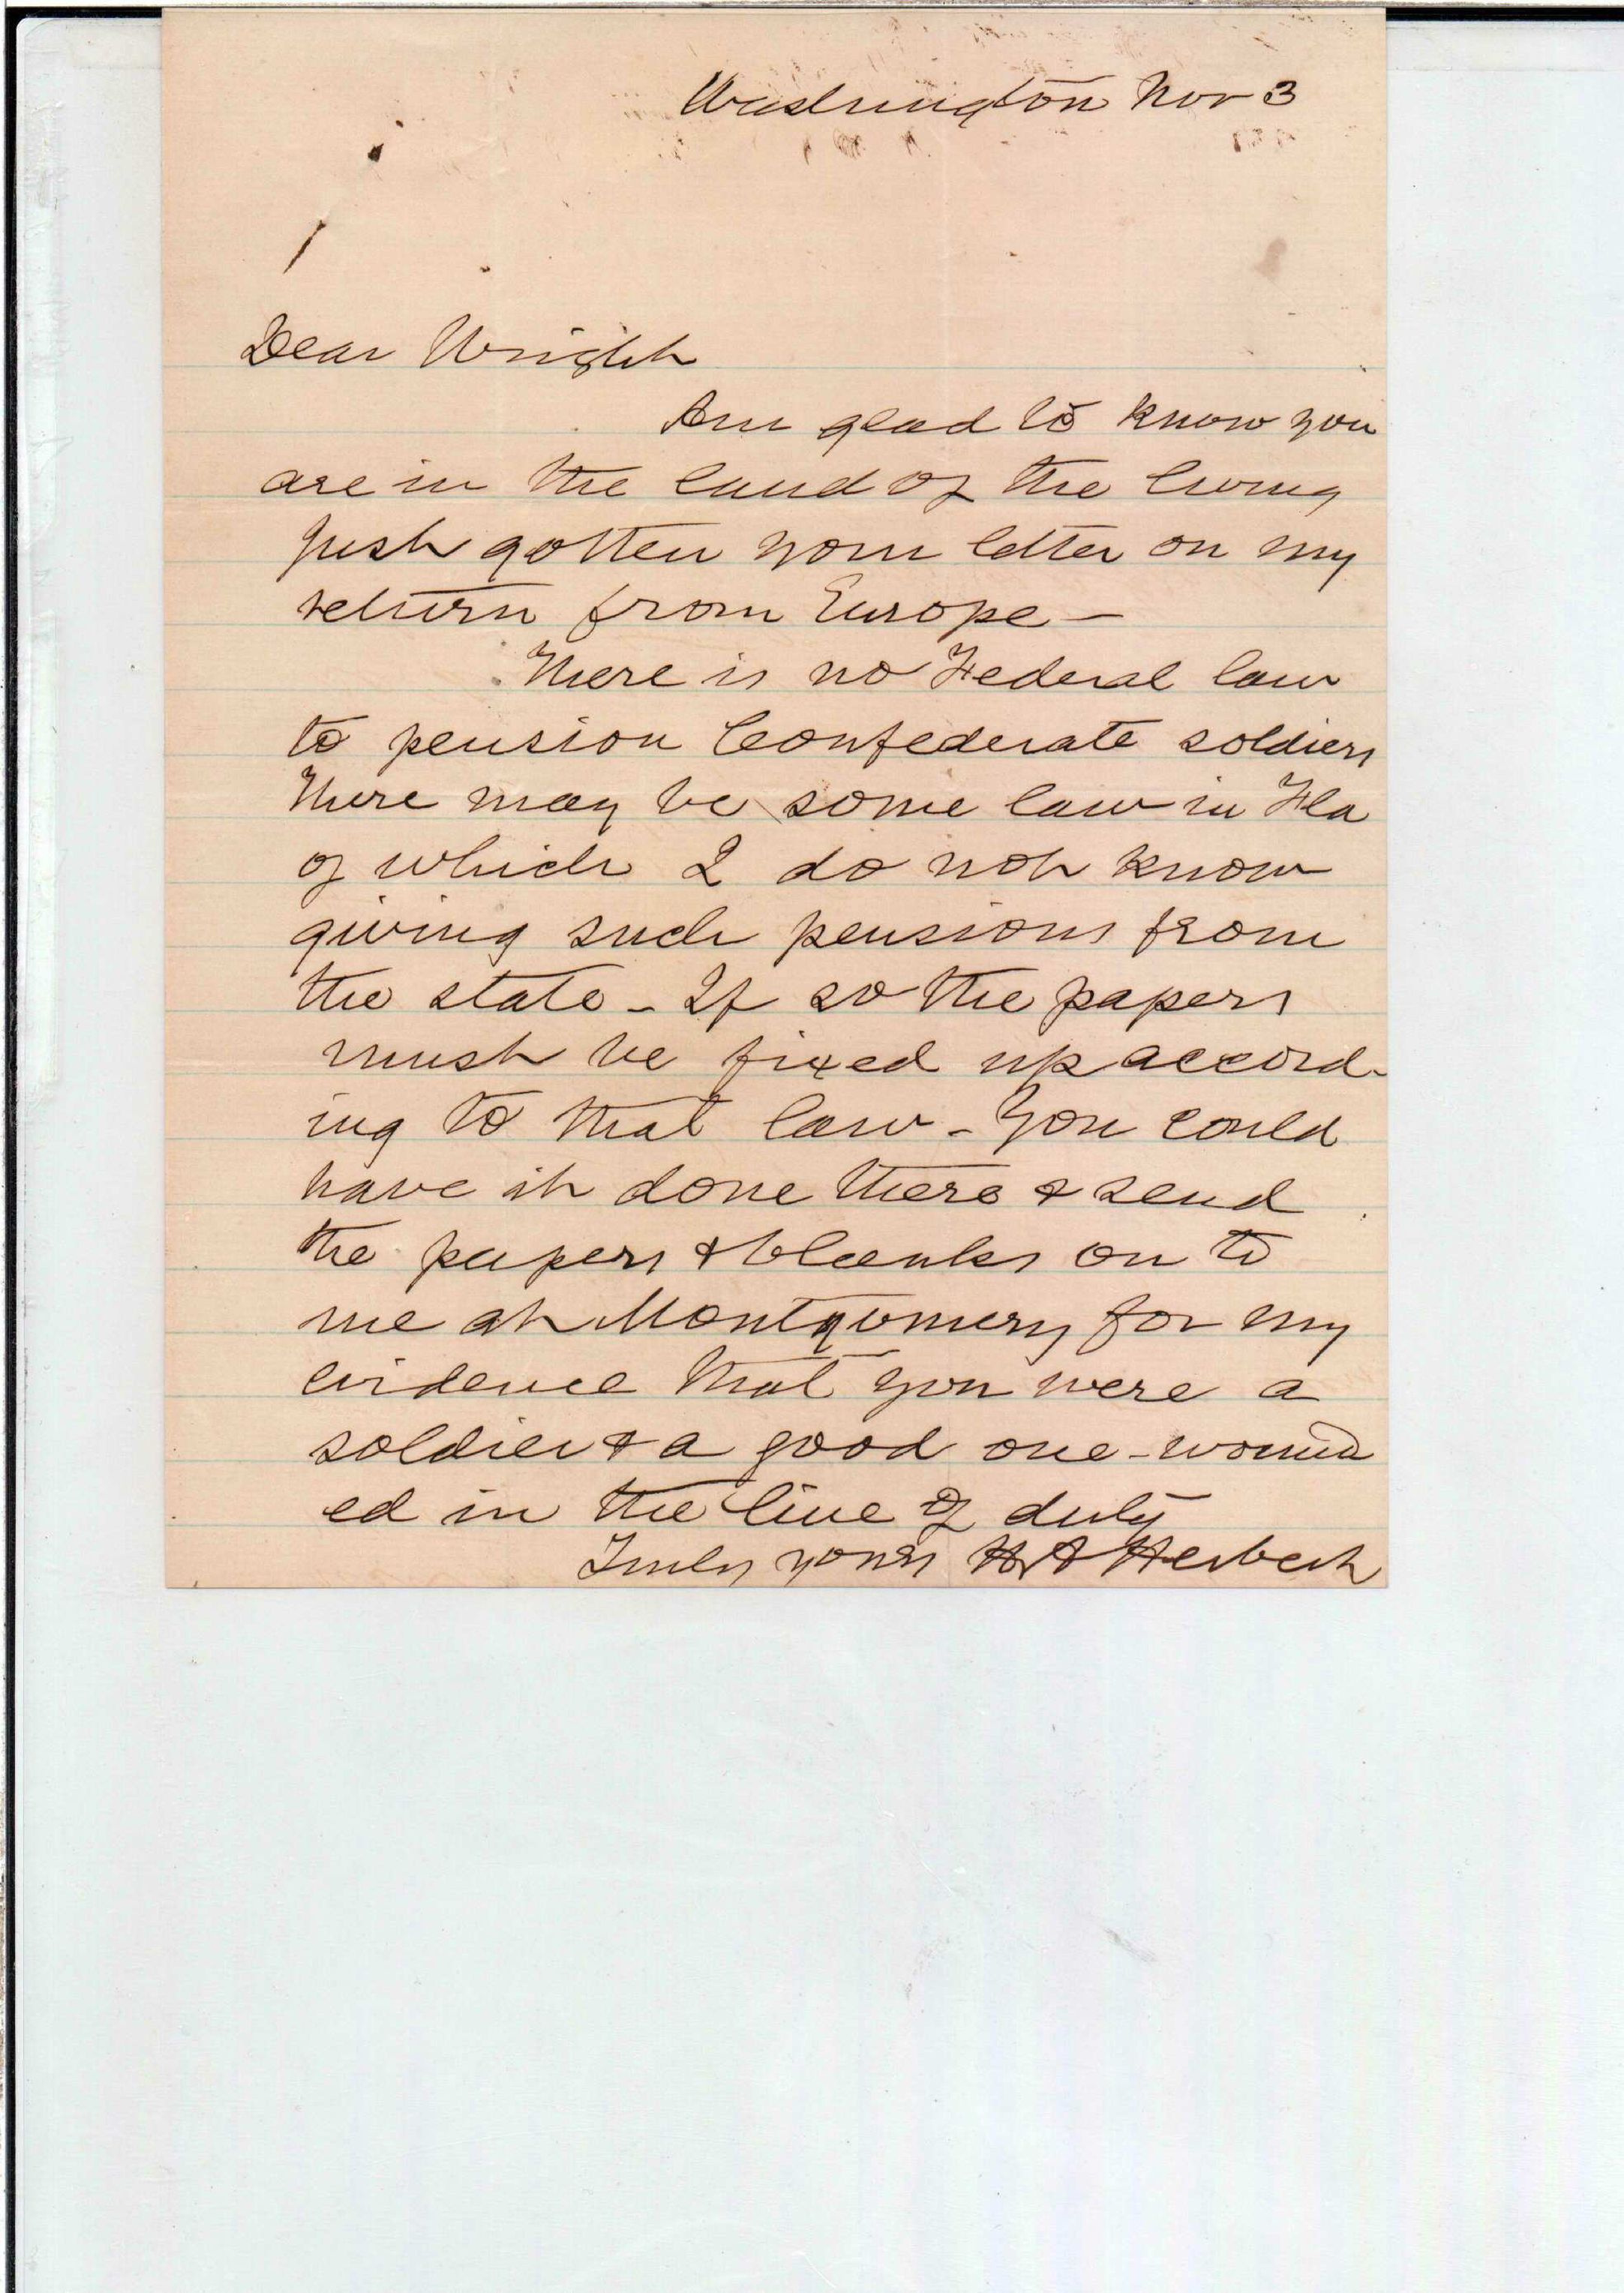 Washington Nov 3
Dear Wright
Am glad to know you
are in the land of the living
Just gotten your letter on my
return from Europe—
There is no Federal law
to pension Confederate soldiers
There may be some law in Fla
of which I do not know
giving such pensions from
the state - If so the papers
must be fixed up accord-
ing to that law - You could
have it done there & send
the papers & blanks on to
me at Montgomery for my
evidence that you were a
soldier & a good one - wound
ed in the line of duty
Truly yours H A Herbert